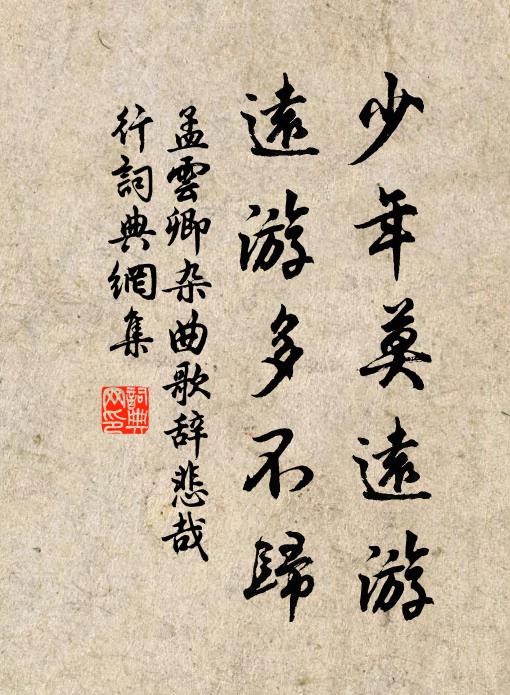 少年莫遠游
遠游多不歸
孟雲卿杂曲歌辞悲哉
行詞典網集
詞典
网印